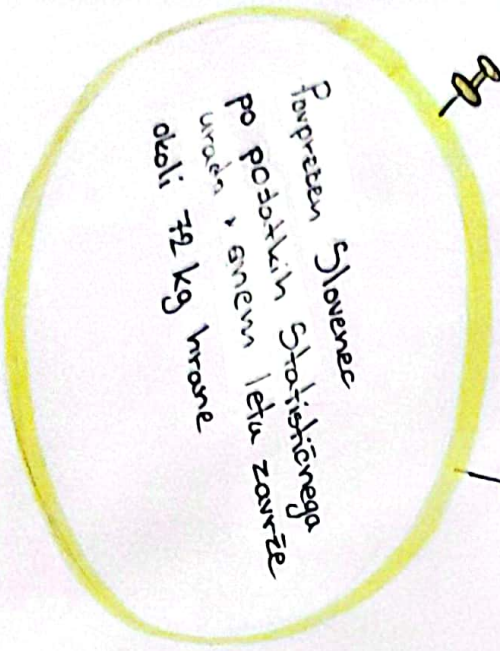 Povprečen Slovenec
po podatkih Statističnega
urada v enem letu zavrže
okoli 72 kg hrane